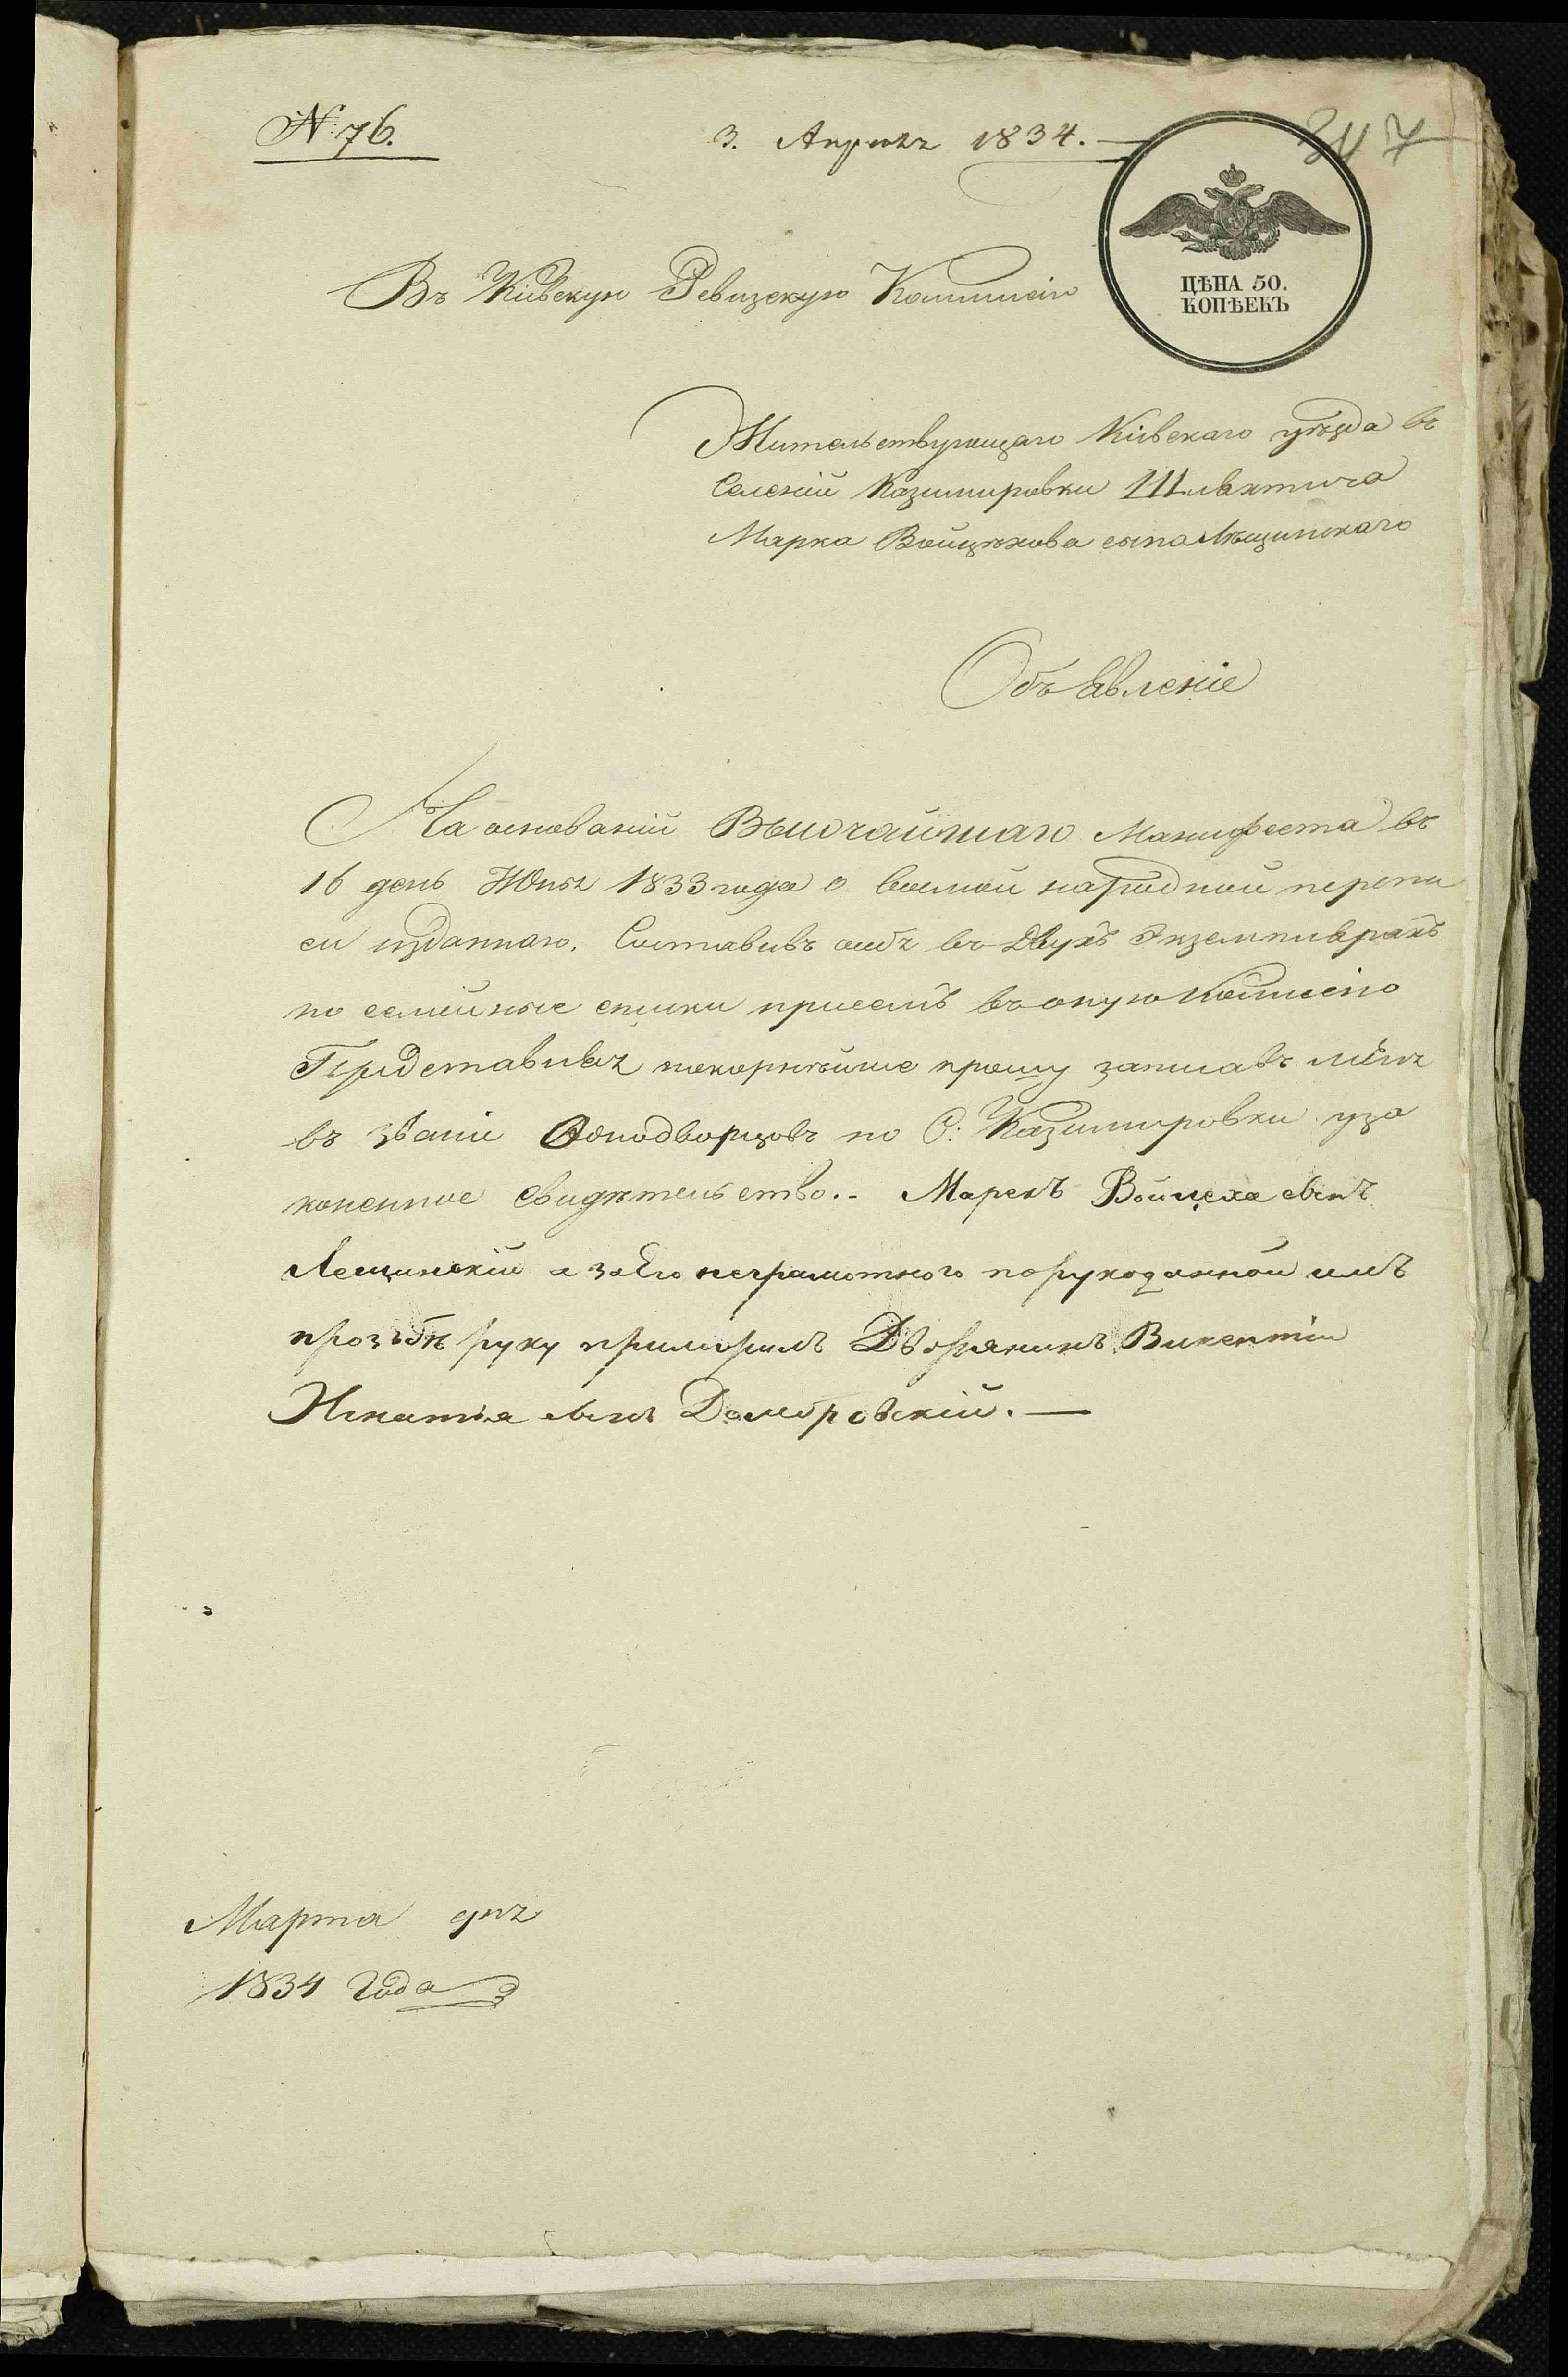 № 76.
3. Апреля 1834.
347
ЦѢНА 50.
КОПѢЕКЪ
Въ Кіевскую Ревизскую Коммисію
Жительствующаго Кіевскаго уѣзда въ
Селеніи Казимировки Шляхтича
Марка Войцѣхова сына Лѣщинскаго
Объявленіе
На основаніи Высочайшаго Манифеста въ
16 день Июня 1833 года о восмой народной перепи
си изданнаго. Составивъ въ двухъ Экземплярахъ
по семейные списки присемъ въ оную Комисію
Представляя покорнѣйше прошу записавъ меня
въ званіи Однодворцовъ по С: Казимировки уза
коненное свидѣтельство.- Марекъ Войцеха сынъ
Лещинскій а за Его неграмотного порукоданной имъ
прозьбѣ руку приложилъ Дворянинъ Викентій
Игнатія сынъ Домбровскій. —
Марта дня
1834 Года